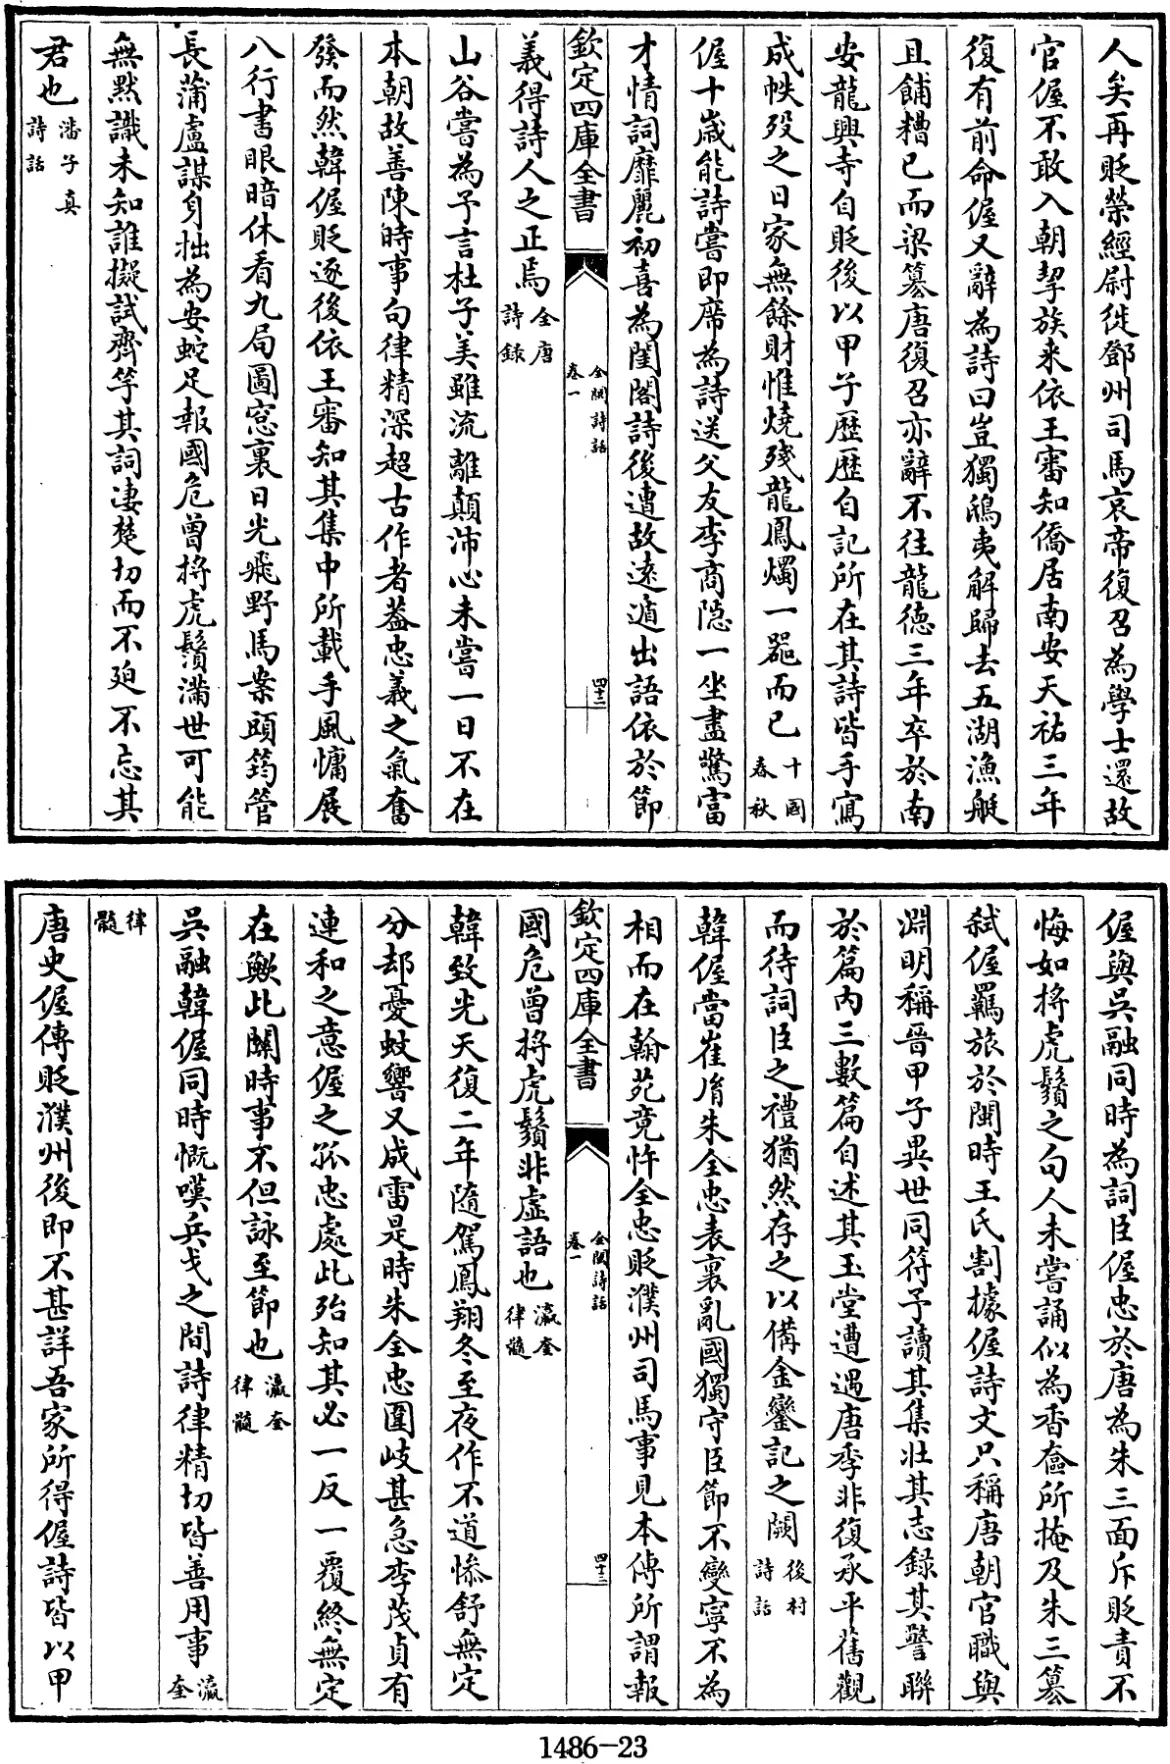 人矣再貶榮經尉徙鄧州司馬哀帝復召為學士還故
官偓不敢入朝挈族來依王審知僑居南安天祐三年
復有前命偓又辭為詩曰豈獨鴟夷解歸去五湖漁艇
且餔糟已而梁篡唐復召亦辭不往龍德三年卒於南
安龍興寺自貶後以甲子歷歷自記所在其詩皆手寫
成帙歿之日家無餘財惟燒殘龍鳳燭一器而已十國春秋
偓十歲能詩嘗即席為詩送父友李商隱一坐盡驚富
才情詞靡麗初喜為閨閣詩後遭故遠遁出語依於節
欽定四庫全書 全閩詩話 卷一 四十二
義得詩人之正焉全唐詩錄
山谷嘗為予言杜子美雖流離顛沛心未嘗一日不在
本朝故善陳時事句律精深超古作者葢忠義之氣奮
發而然韓偓貶逐後依王審知其集中所載手風慵展
八行書眼暗休看九局圖窓裏日光飛野馬案頭筠管
長蒲盧謀身拙為安蛇足報國危曾捋虎鬚滿世可能
無默識未知誰擬試齊竽其詞淒楚切而不迫不忘其
君也潘子真詩話
偓與吳融同時為詞臣偓忠於唐為朱三面斥貶責不
悔如捋虎鬚之句人未嘗誦似為香奩所掩及朱三篡
弒偓羈旅於閩時王氏割據偓詩文只稱唐朝官職與
淵明稱晉甲子異世同符予讀其集壯其志錄其警聯
於篇内三數篇自述其玉堂遭遇唐季非復承平舊觀
而待詞臣之禮猶然存之以備金鑾記之闕後村詩話
韓偓當崔胤朱全忠表裏亂國獨守臣節不變寧不為
相而在翰苑竟忤全忠貶濮州司馬事見本傳所謂報
欽定四庫全書 全閩詩話 卷一 四十三
國危曾捋虎鬚非虛語也瀛奎律髓
韓致光天復二年隨駕鳳翔冬至夜作不道慘舒無定
分却憂蚊響又成雷是時朱全忠圍岐甚急李茂貞有
連和之意偓之孤忠處此殆知其必一反一覆終無定
在歟此關時事不但詠至節也瀛奎律髓
吳融韓偓同時慨嘆兵戈之間詩律精切皆善用事瀛奎
律髓
唐史偓傳貶濮州後即不甚詳吾家所得偓詩皆以甲
1486—23